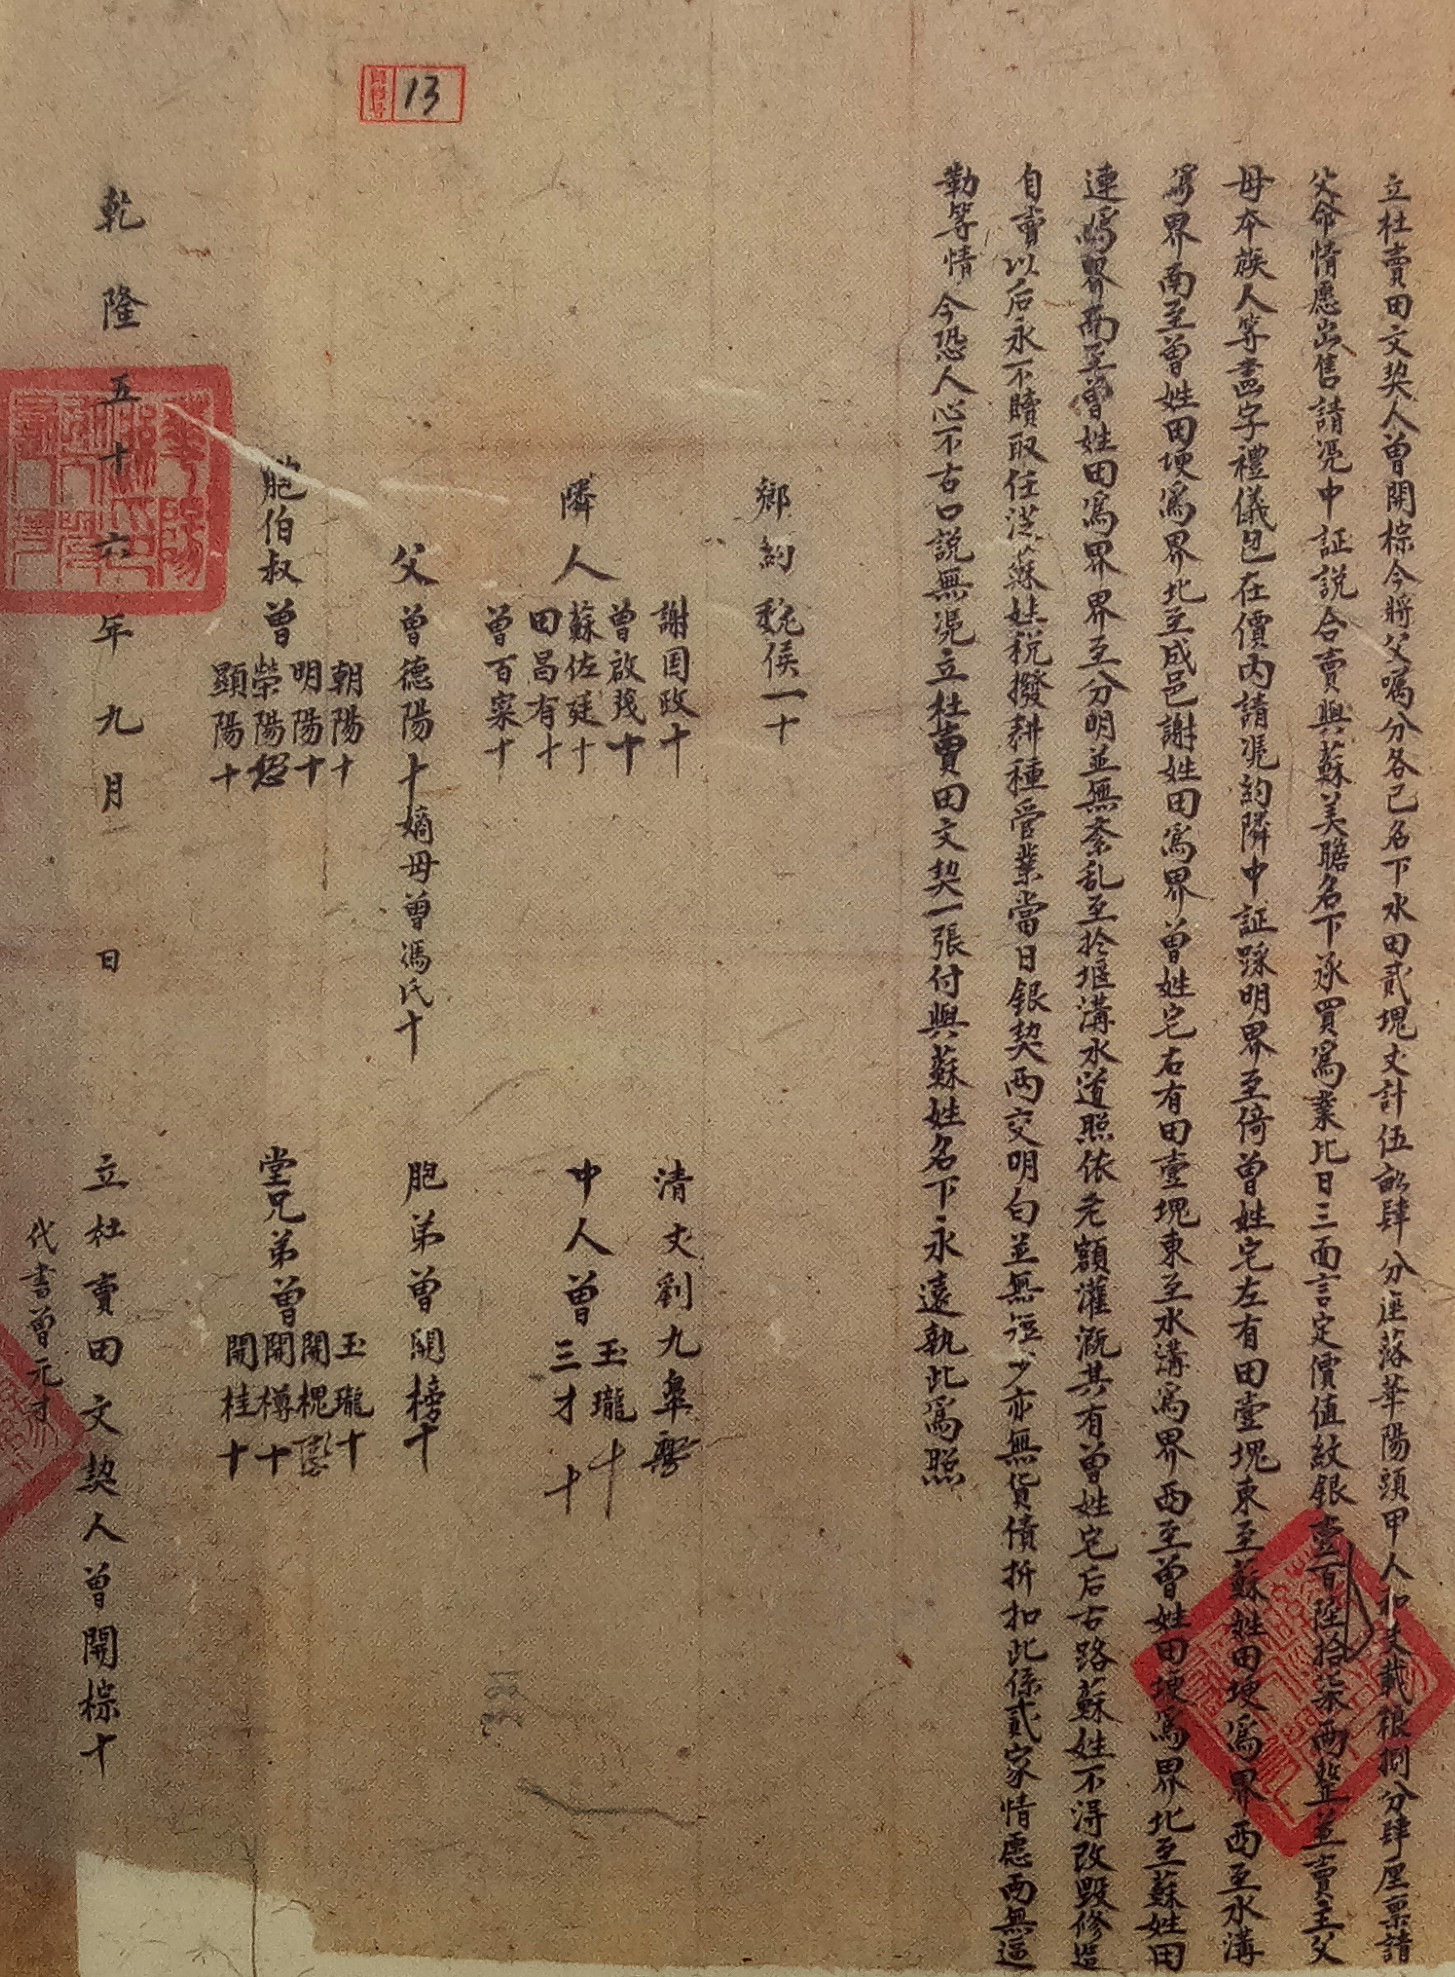 立杜賣田文契人曾開棕今將父嘱分各己名下水田貳塊丈計伍畝肆分座落華陽頭甲人和支載粮捌分肆厘稟請
父命情愿出售請凴中証説合賣與蘇美贍名下承買爲業比日三面言定價值紋銀壹百陸拾柒兩整並賣主父
母本族人等畫字禮儀包在價内請凴約隣中証踩明界至倚曾姓宅左有田壹塊東至蘇姓田埂爲界西至水溝
爲界南至曾姓田埂爲界北至成邑謝姓田爲界曾姓宅右有田壹塊東至水溝爲界西至曾姓田埂爲界北至蘇姓田
連爲界南至曾姓田爲界界至分明並無紊乱至於堰溝水道照依老額灌溉其有曾姓宅后古路蘇姓不得改毁修造
自賣以后永不贖取任凴蘇姓税撥耕種管業當日銀契兩交明白並無短少亦無貨債折扣此係貳家情愿兩無逼
勒等情今恐人心不古口説無凴立杜賣田文契一張付與蘇姓名下永遠執此爲照
鄉約 魏侯一十
謝国政十
隣人 曾啟茂十
蘇佐廷十
田昌有十
曾百寀十
清丈劉九皐
中人曾 玉瓏十
三才十
父曾德陽十嫡母曾馮氏十
胞弟曾開榜十
胞伯叔曾 朝陽十
明陽十
榮陽
顕陽十
堂兄弟曾 玉瓏十
開槐
開樽十
開桂十
乾隆五十六年九月 日 立杜賣田文契人曾開棕十
代書曾元才
13